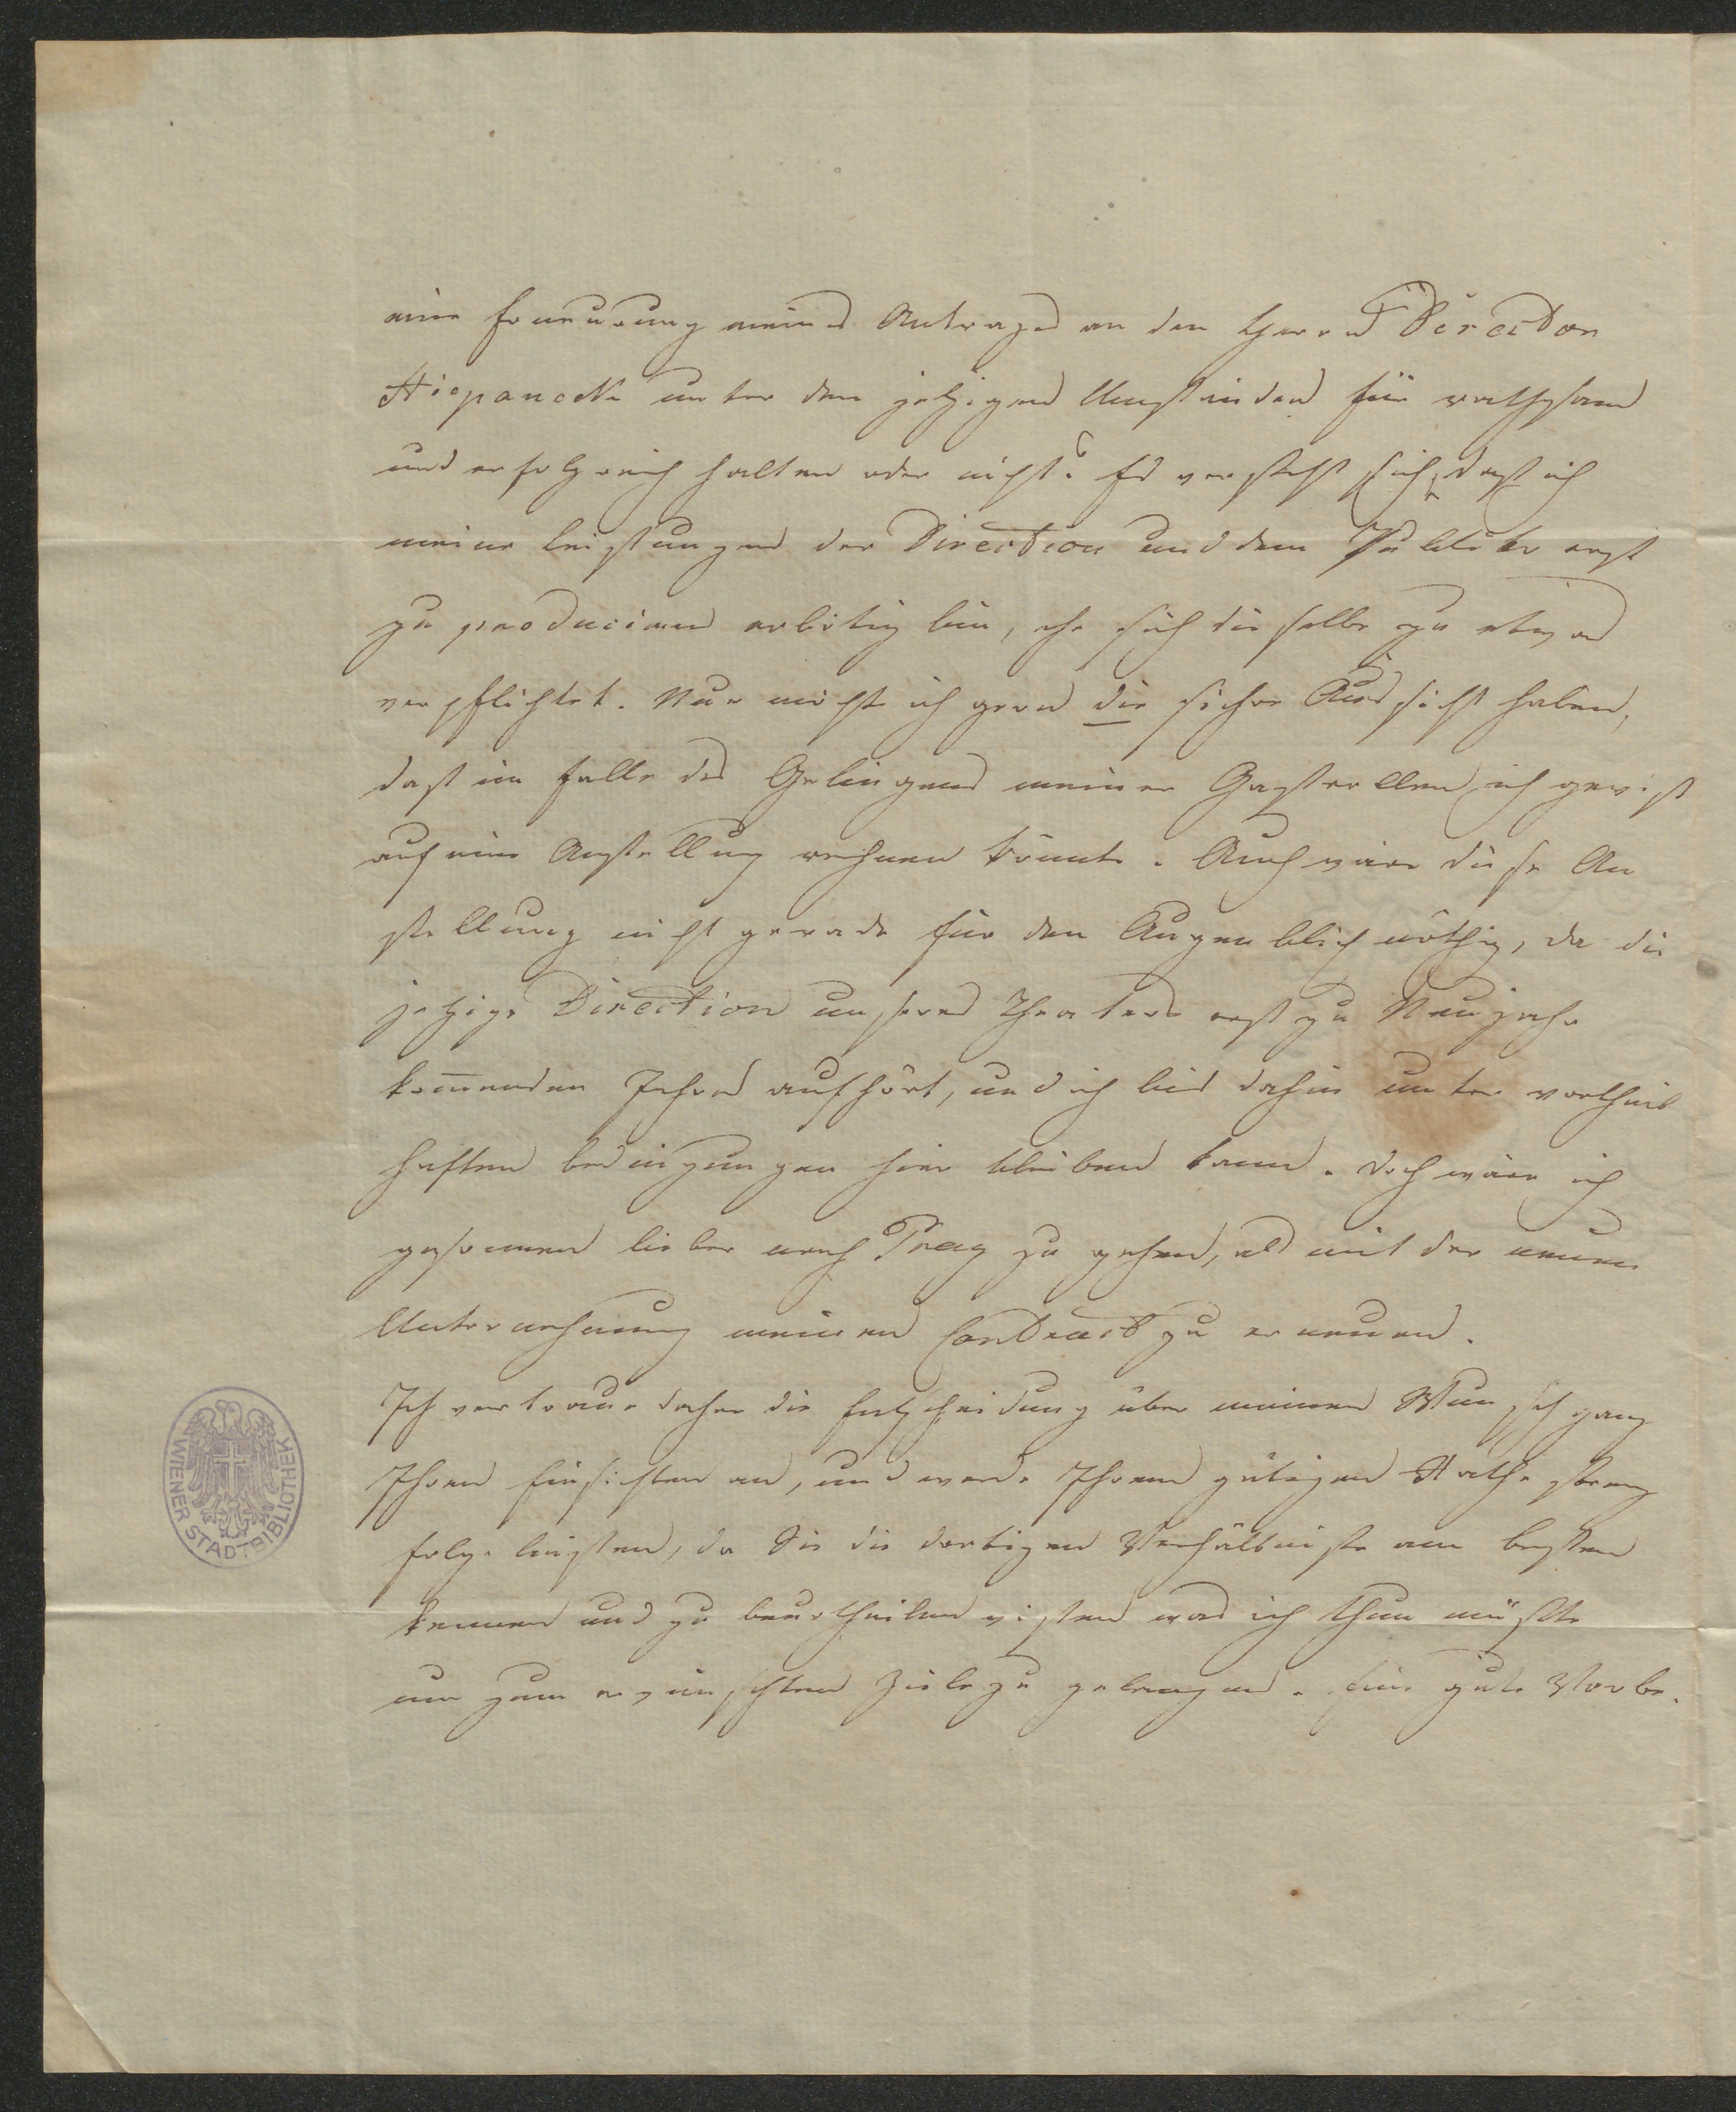 eine Erneuerung meines Antrages an den Herrn Director
Stiepaneck unter den jetzigen Umständen für rathsam
und erfolgreich halten oder nicht? Es versteht sich, daß ich
meine Leistungen der Direction und dem Publiko erst
zu produciren erbötig bin, ehe sich dieselbe zu etwas
verpflichtet. Nur möchte ich gern die sichre Aussicht haben,
daß im Falle des Gelingens meiner Gastrollen ich gewiß
auf eine Anstellung rechnen könnte. Auch wäre diese An
stellung nicht gerade für den Augenblick nöthig, da die
jetzige Direction unseres Theaters erst zu Neujahr
kom̅enden Jahres aufhört, und ich bis dahin unter vortheil
haften Bedingungen hier bleiben kann. Doch wäre ich
gesonnen lieber nach Prag zu gehen, als mit der neuen
Unternehmung meinen Contract zu erneuen.
Ich vertraue daher die Entscheidung über meinen Wunsch ganz
Ihren Einsichten an, und werde Ihrem gütigen Rathe streng
Folge leisten, da Sie die dortigen Verhältniße am besten
kennen und zu beurtheilen wissen was ich thun müßte
um zum erwünschten Ziele zu gelangen. Eine gute Vorbe-
WIENER STADTBIBLIOTHEK